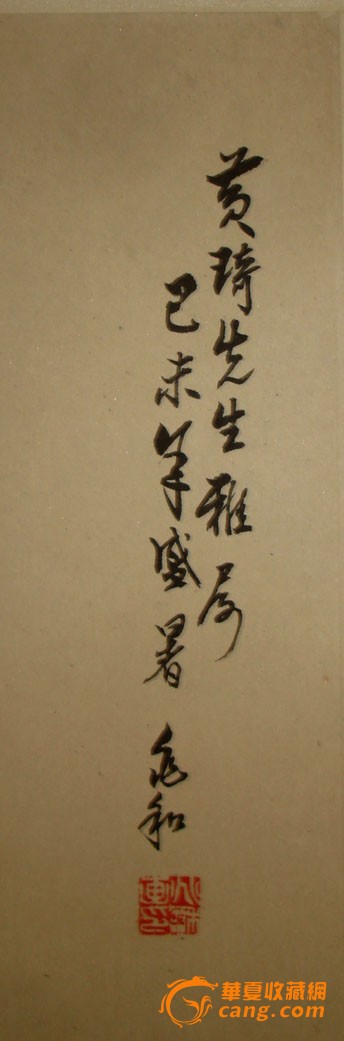 黄琦先生雅属
己未年盛暑 兆和
華夏收藏網
cang.com